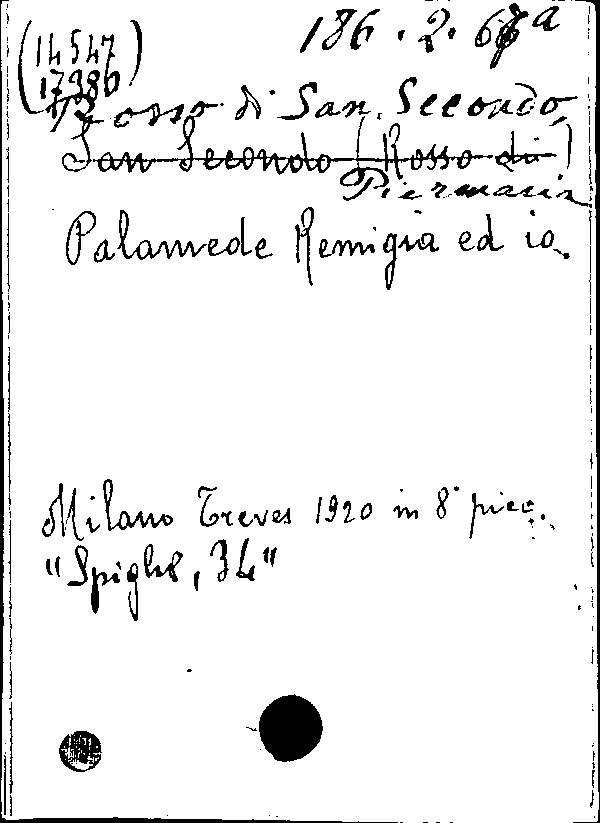 (14547
17986)
186.2.67a
Rosso di San Secondo,
San Secondo (Rosso di)
Piermaria
Palamede Remigia ed io.
Milano Treves 1920 in 8° picc.
"Spighe, 34"